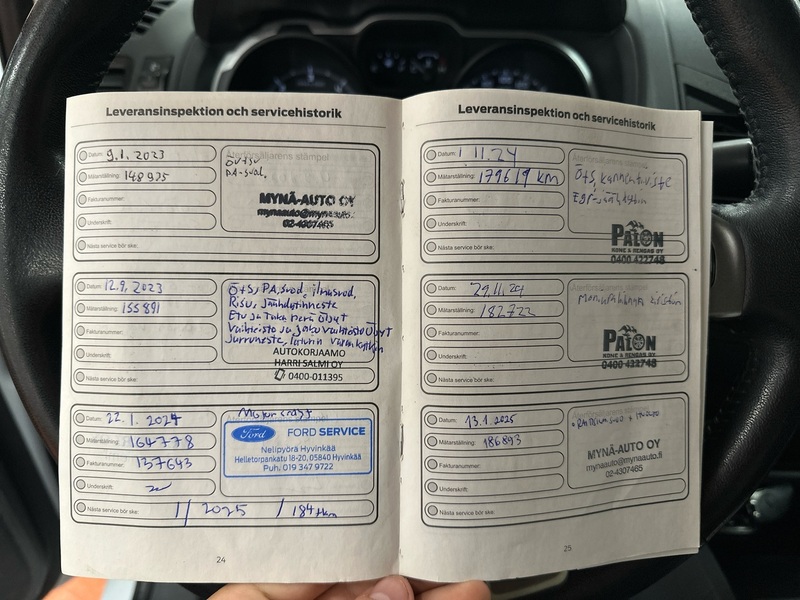 Leveransinspektion och servicehistorik
Datum: 9.1.2023
Återförsäljarens stämpel
Mätarställning: 148935
PA-suod.
Fakturanummer:
MYNÄ-AUTO OY
mynaauto@myna
02-4307465
Underskrift:
Nästa service bör ske:
Datum: 12.9.2023
Mätarställning: 155891
Ö+S, PA.suod, ilmasuod,
Risu, Jäähdytinneste
Etu ja taka perä öljyt
Vaihteisto ja jako vaihteisto öljyt
Jarruneste, laturin
Fakturanummer:
Underskrift:
AUTOKORJAAMO
HARRI SALMI OY
0400-011395
Nästa service bör ske:
Datum: 22.1.2024
Motorcraft
Mätarställning: 164778
Ford FORD SERVICE
Nelipyörä Hyvinkää
Helletorpankatu 18-20, 05840 Hyvinkää
Puh. 019 347 9722
Fakturanummer: 137643
Underskrift:
Nästa service bör ske: 1/2025 / 184 tkm
24
Leveransinspektion och servicehistorik
Datum: 1 11.24
Återförsäljarens stämpel
Mätarställning: 179619 km
Ö+S,
Fakturanummer:
Underskrift:
PATON
0400 422748
Nästa service bör ske:
Datum: 29.11.24
Återförsäljarens stämpel
Mätarställning: 182722
Fakturanummer:
Underskrift:
PATON
KONE & RENGAS OY
0400 422748
Nästa service bör ske:
Datum: 13.1.2025
Mätarställning: 186893
Fakturanummer:
MYNÄ-AUTO OY
mynaauto@mynaauto.fi
02-4307465
Underskrift:
Nästa service bör ske:
25